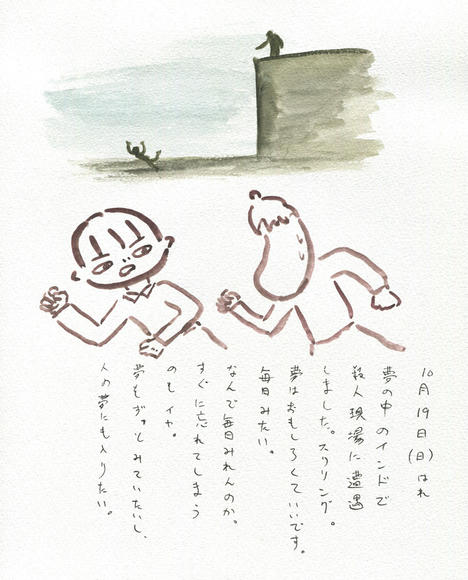 10月19日(日)はれ
夢の中のインドで
殺人現場に遭遇
しました。スリリング。
夢はおもしろくていいです。
毎日みたい。
なんで毎日みれんのか。
すぐに忘れてしまう
のもイヤ。
夢をずっとみていたいし、
人の夢にも入りたい。